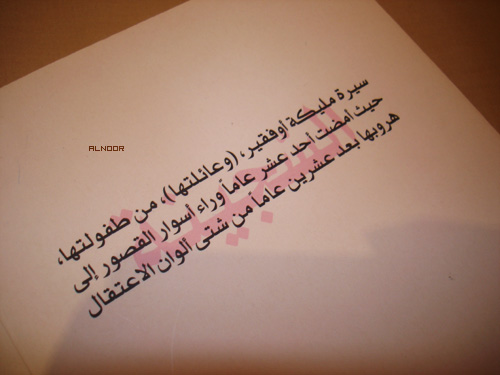 سيرة مليكة أوفقير، (وعائلتها)، من طفولتها،
حيث أمضت أحد عشر عاماً وراء أسوار القصور إلى
هروبها بعد عشرين عاماً من شتى ألوان الاعتقال
السجينة
ALNOOR